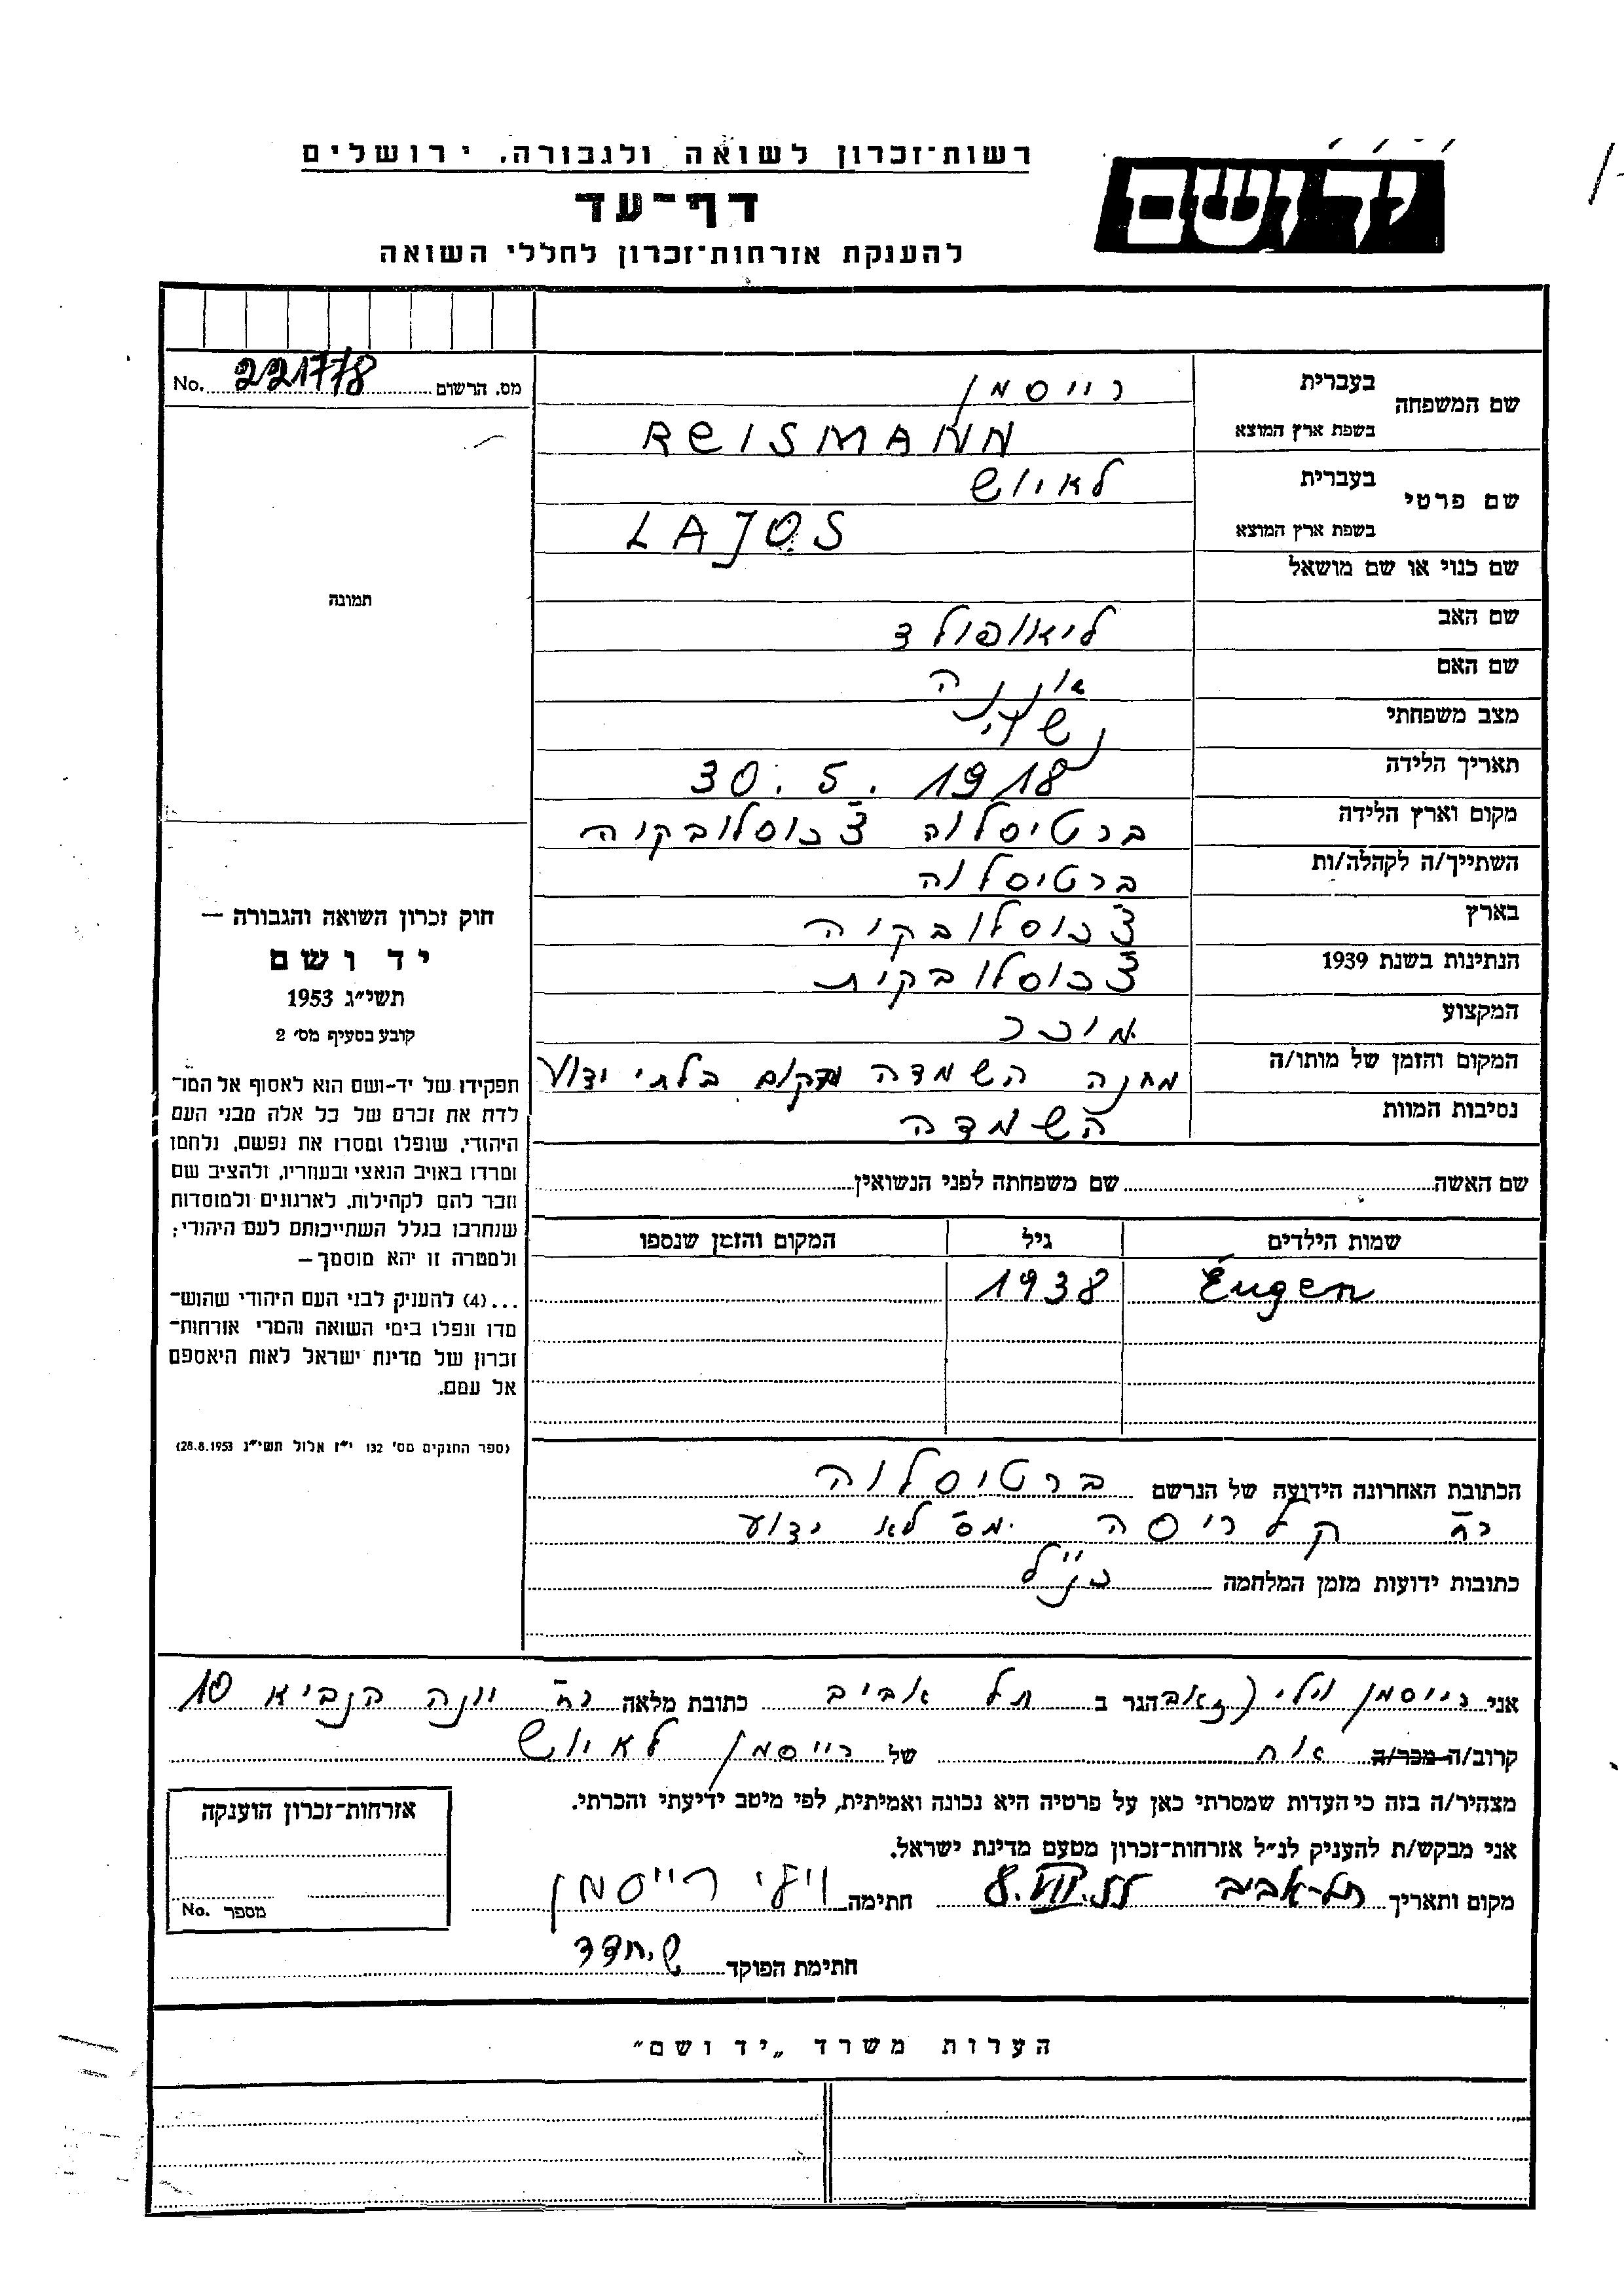 רשות-זכרון לשואה ולגבורה. ירושלים
יד ושם
דף-עד
להענקת אזרחות-זכרון לחללי השואה
מס. הרשום 221778 No.
שם המשפחה
בעברית רייסמן
בשפת ארץ המוצא REISMANN
שם פרטי
בעברית לאיוש
בשפת ארץ המוצא LAJOS
שם כנוי או שם מושאל
שם האב ליאופולד
שם האם
מצב משפחתי נשוי
תאריך הלידה 30.5.1918
מקום וארץ הלידה ברטיסלוה צ'כוסלובקיה
השתייך/ה לקהלה/ות ברטיסלוה
בארץ צ'כוסלובקיה
הנתינות בשנת 1939 צ'כוסלובקית
המקצוע מוכר
המקום והזמן של מותו/ה מחנה השמדה מקום בלתי ידוע
נסיבות המוות השמדה
שם האשה שם משפחתה לפני הנשואין
שמות הילדים גיל המקום והזמן שנספו
Eugen 1938
הכתובת האחרונה הידועה של הנרשם ברטיסלוה
רח' קלריסה מס' לא ידוע
כתובות ידועות מזמן המלחמה כנ"ל
תמונה
חוק זכרון השואה והגבורה —
יד ושם
תשי"ג 1953
קובע בסעיף מס' 2
תפקידו של יד-ושם הוא לאסוף אל המו-
לדת את זכרם של כל אלה מבני העם
היהודי, שנפלו ומסרו את נפשם, נלחמו
ומרדו באויב הנאצי ובעוזריו, ולהציב שם
וזכר להם לקהילות, לארגונים ולמוסדות
שנחרבו בגלל השתייכותם לעם היהודי;
ולמטרה זו יהא מוסמך —
...(4) להעניק לבני העם היהודי שהוש-
מדו ונפלו בימי השואה והמרי אזרחות-
זכרון של מדינת ישראל לאות היאספם
אל עמם.
(ספר החוקים מס' 132 י"ז אלול תשי"ג 28.8.1953)
אני רייסמן וילי (זאב הגר ב תל אביב כתובת מלאה רח' יונה הנביא 10
קרוב/ה מכר/ה אח של רייסמן לאיוש
מצהיר/ה בזה כי העדות שמסרתי כאן על פרטיה היא נכונה ואמיתית, לפי מיטב ידיעתי והכרתי.
אני מבקש/ת להעניק לנ"ל אזרחות-זכרון מטעם מדינת ישראל.
מקום ותאריך תל-אביב 8.VII.55 חתימה וילי רייסמן
חתימת הפוקד ש. חדד
אזרחות-זכרון הוענקה
מספר No.
הערות משרד „יד ושם"